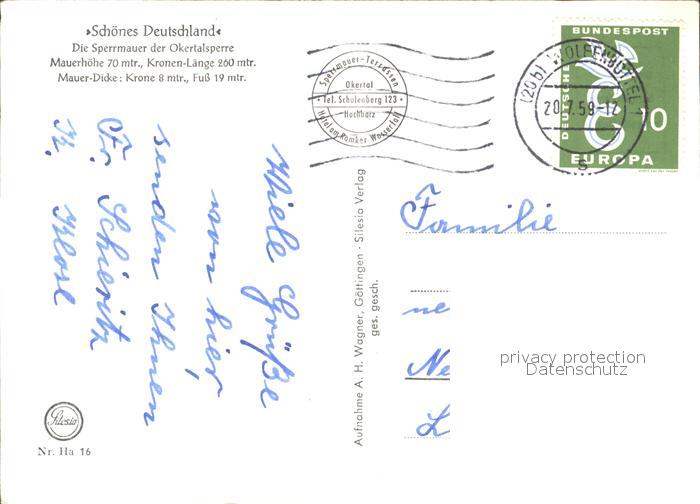 »Schönes Deutschland«
Die Sperrmauer der Okertalsperre
Mauerhöhe 70 mtr., Kronen-Länge 260 mtr.
Mauer-Dicke: Krone 8 mtr., Fuß 19 mtr.
Sperrmauer-Terrassen
Okertal
Tel. Schulenberg 123
Hochharz
Hotel am Romker Wasserfall
(20b) WOLFENBÜTTEL
20.7.59-12
s
DEUTSCHE
BUNDESPOST
10
EUROPA
Viele Grüße
von hier,
senden Ihnen
Fr. Schieritz
Klose
Aufnahme A. H. Wagner, Göttingen · Silesia Verlag
ges. gesch.
Familie
ne
Ne
L
privacy protection
Datenschutz
Silesia
Nr. Ha 16